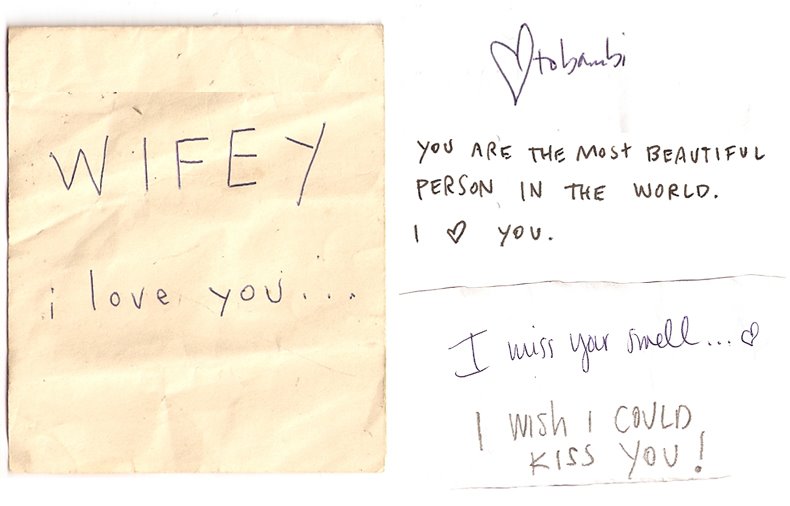 WIFEY
i love you...
♡tobambi
YOU ARE THE MOSt BEAUTIFUL
PERSON IN THE WORLD.
I ♡ YOU.
I miss your smell...♡
I WISh I COULD
KISS YOU!